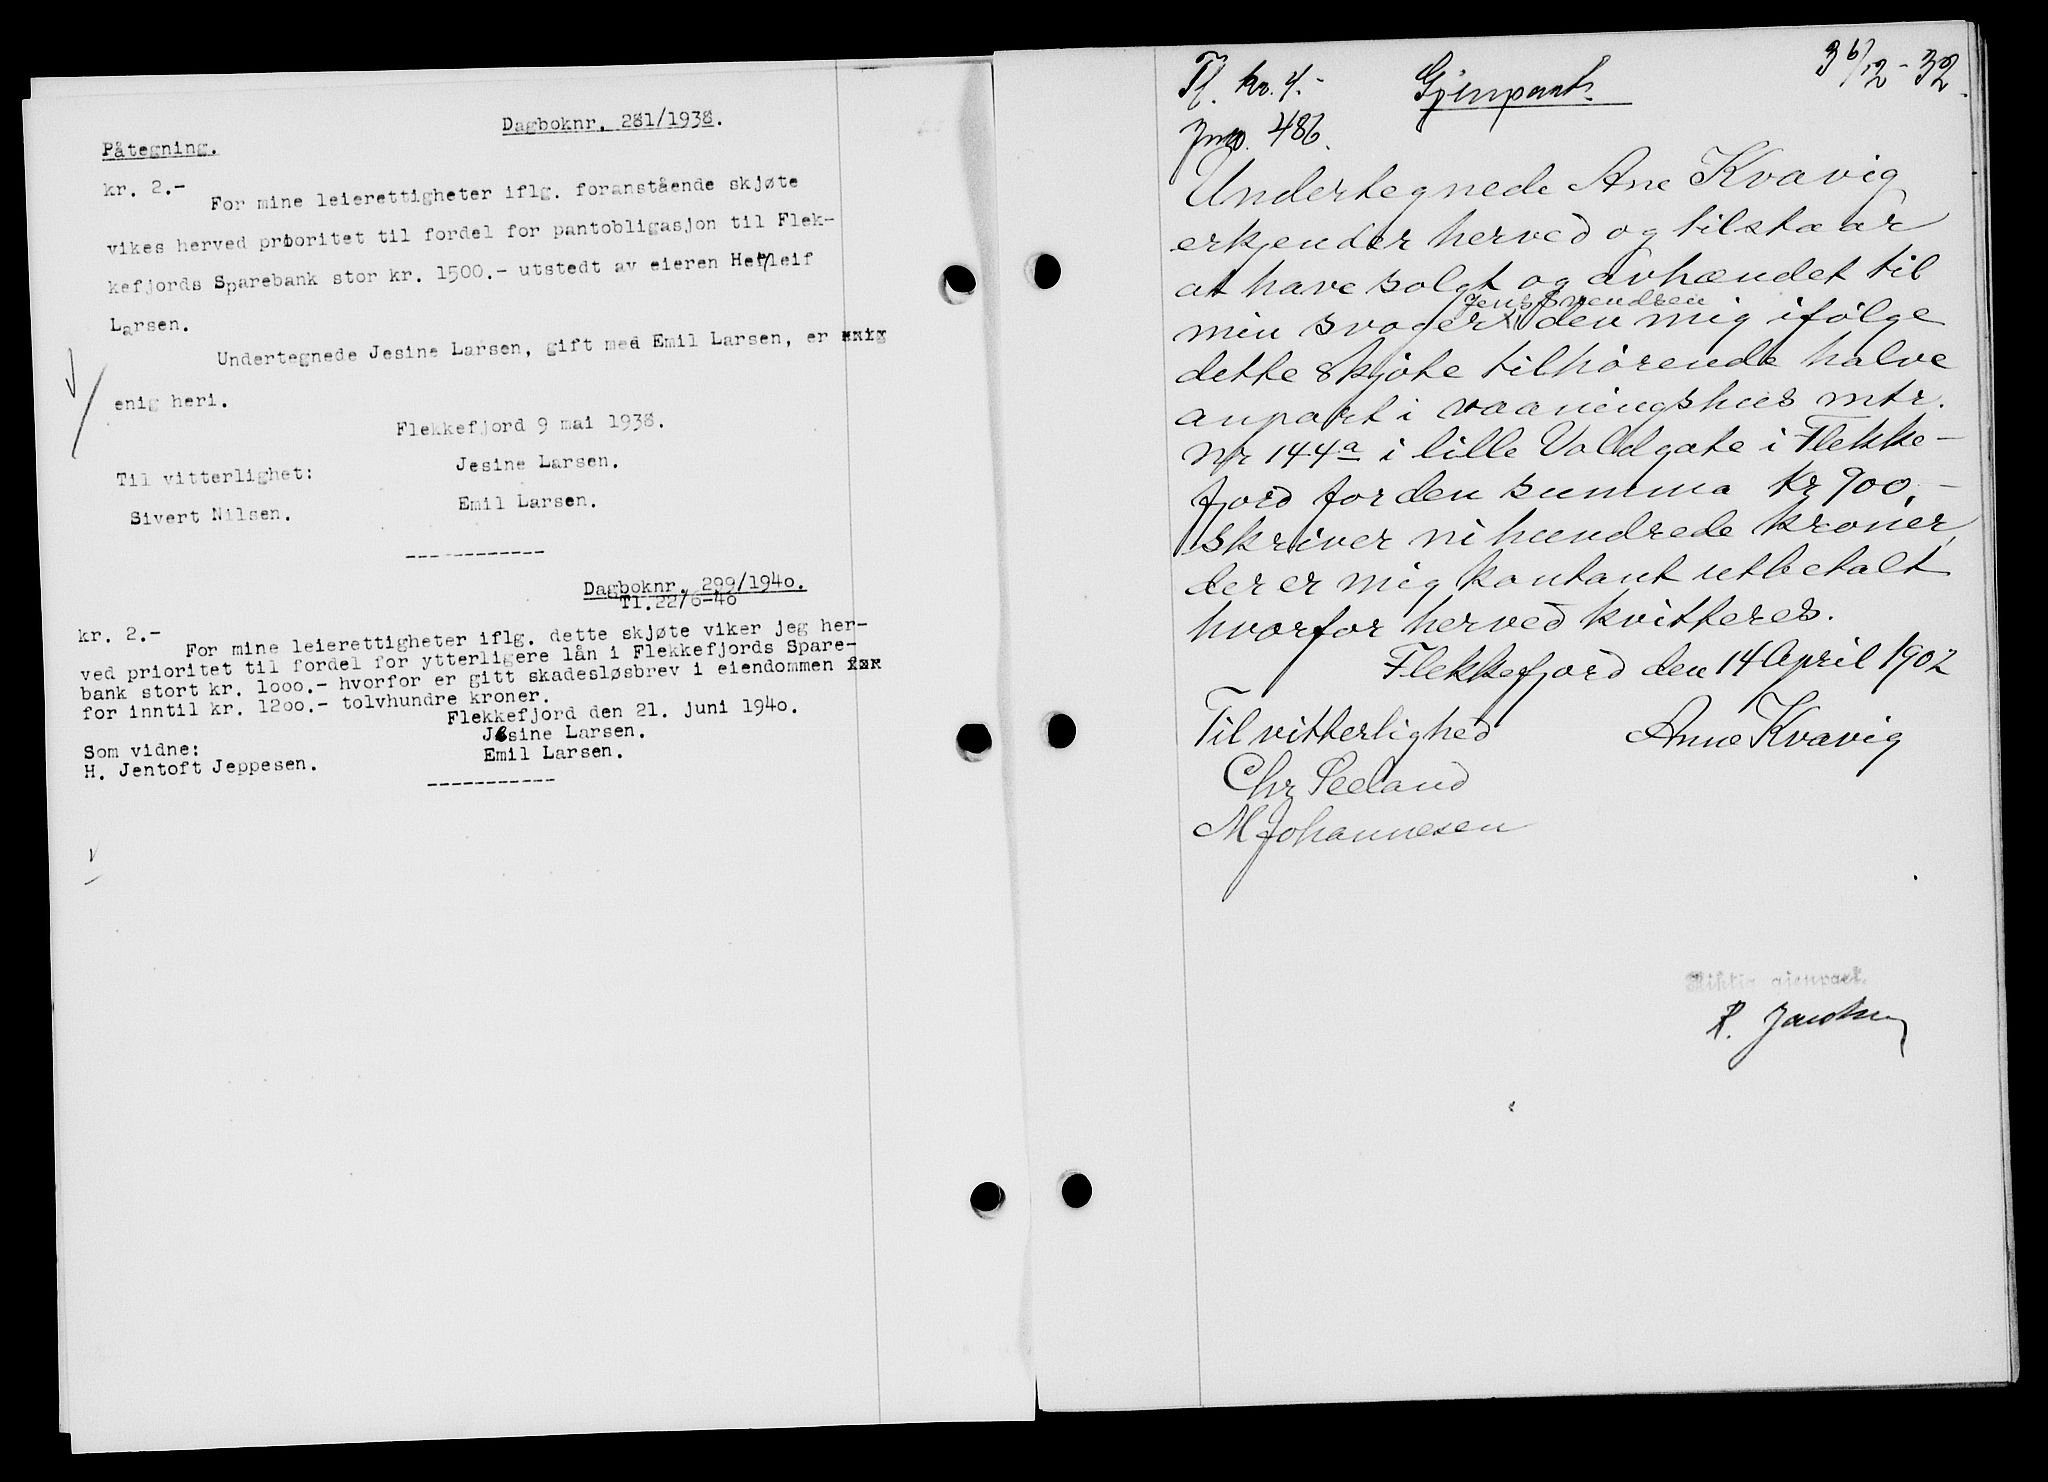 Dagboknr. 281/1938.
Påtegning.
kr. 2.-
For mine leierettigheter iflg. foranstående skjøte
vikes herved prioritet til fordel for pantobligasjon til Flek-
kefjords Sparebank stor kr. 1500.- utstedt av eieren Herleif
Larsen.
Undertegnede Jesine Larsen, gift med Emil Larsen, er enig
enig heri.
Flekkefjord 9 mai 1938.
Jesine Larsen.
Til vitterlighet:
Emil Larsen.
Sivert Nilsen.
------------
Dagboknr. 299/1940.
Tl.22/6-40
kr. 2.-
For mine leierettigheter iflg. dette skjøte viker jeg her-
ved prioritet til fordel for ytterligere lån i Flekkefjords Spare-
bank stort kr. 1000.- hvorfor er gitt skadesløsbrev i eiendommen for
for inntil kr. 1200.- tolvhundre kroner.
Flekkefjord den 21. juni 1940.
Jesine Larsen.
Som vidne:
Emil Larsen.
H. Jentoft Jeppesen.
-----------
Tl. kr. 4.- Gjenpart. 3 6/12 - 32.
Jnro. 486.
Undertegnede Ane Kvavig
erkjender herved og tilstaar
at have solgt og avhændet til
Jens Svendsen
min svoger x den mig ifølge
dette skjøte tilhørende halve
anpart i vaaningshus mtr.
Nr 144a i lille Voldgate i Flekke-
fjord for den summa kr 900,-
skriver nihundrede kroner,
der er mig kontant utbetalt
hvorfor herved kvitteres.
Flekkefjord den 14 April 1902
Til vitterlighed Anne Kvavig
Chr Seeland
M Johannesen
Riktig gjenpart.
R. Jacobsen